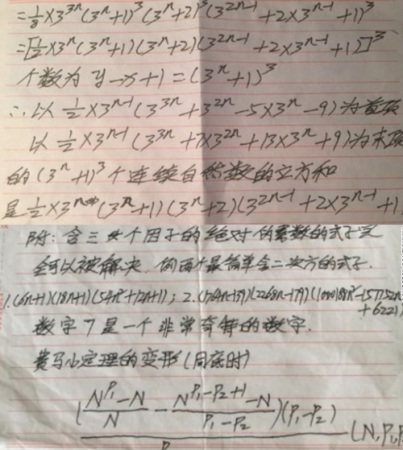 =1/8×3^{3n}(3^n+1)^3(3^n+2)^3(3^{2n-1}+2×3^{n-1}+1)^3
=[1/2×3^n(3^n+1)(3^n+2)(3^{2n-1}+2×3^{n-1}+1)]^3
个数为 y-x+1=(3^n+1)^3
∴以 1/2×3^{n-1}(3^{3n}+3^{2n}-5×3^n-9)为首项
以 1/2×3^{n-1}(3^{3n}+7×3^{2n}+13×3^n+9)为末项
的(3^n+1)^3个连续自然数的立方和
是 1/2×3^n(3^n+1)(3^n+2)(3^{2n-1}+2×3^{n-1}+1
附:含三个因子的绝对伪素数的式子
可以被解决,例两个最简单含二次方的式子.
1.(6n+1)(18n+1)(54n²+12n+1); 2.
+6221)
数字7是一个非常奇特的数字.
费马小定理的变形(周
(\frac{N^{P_1}-N}{N}-\frac{N^{P_1-P_2+1}-N}{P_1-P_2})(P_1-P_2)
(N,P_1,P